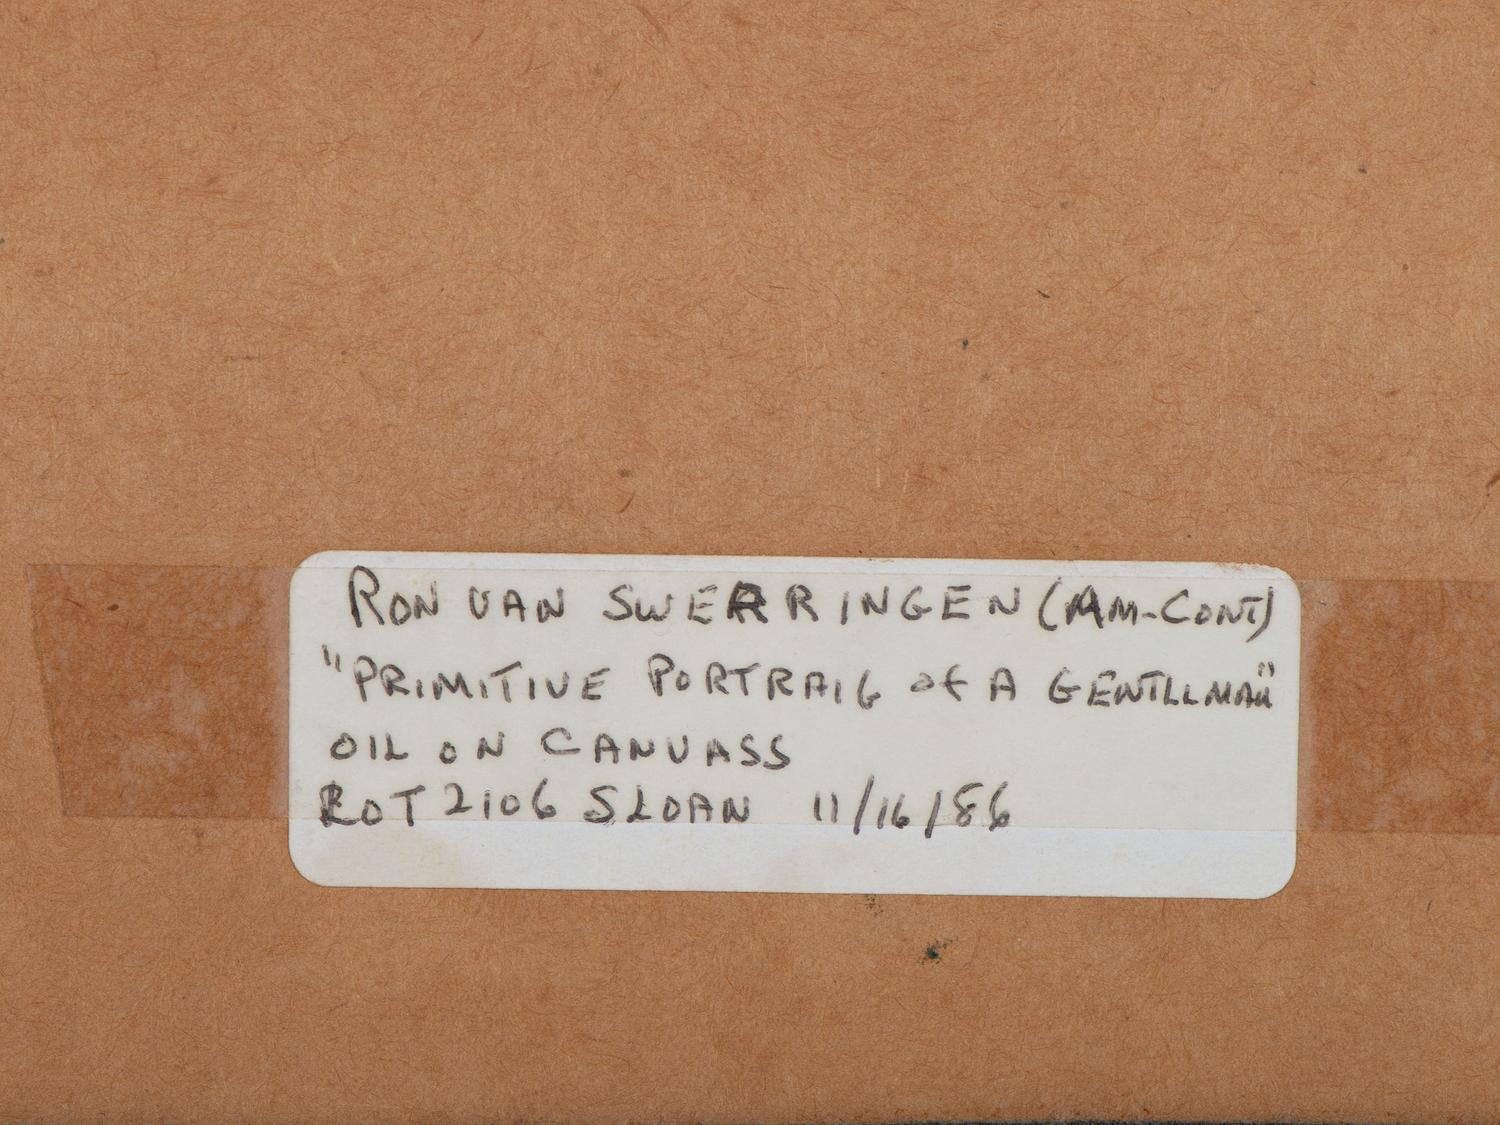 RON VAN SWEARRINGEN (AM-CONT)
"PRIMITIVE PORTRAIG of A GENTLLMAN"
OIL ON CANVASS
LOT 2106 SLOAN 11/16/86